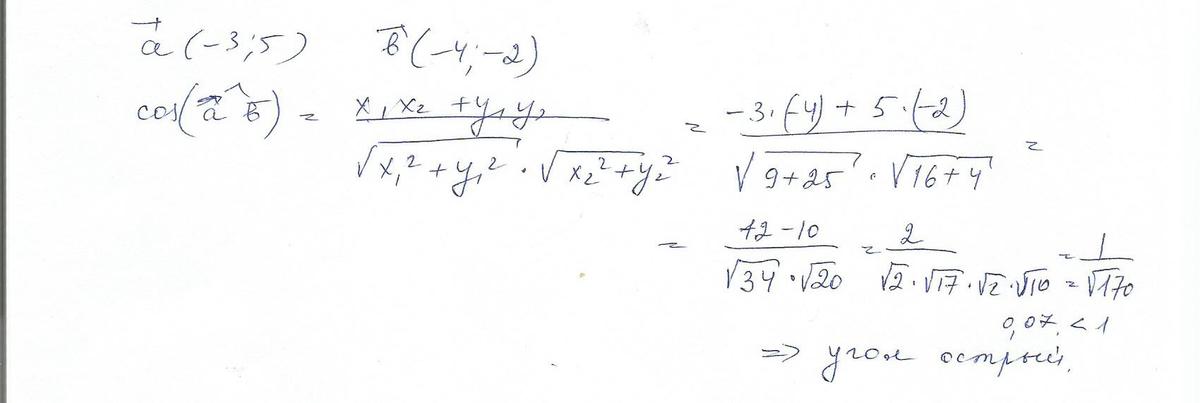 a⃗ (-3; 5)   b⃗ (-4; -2)
cos(a⃗ ^ b⃗) = (x₁x₂ + y₁y₂) / (√(x₁² + y₁²) · √(x₂² + y₂²)) = (-3·(-4) + 5·(-2)) / (√(9+25) · √(16+4)) =
= (12 - 10) / (√34 · √20) = 2 / (√2 · √17 · √2 · √10) = 1 / √170
0,07 < 1
=> угол острый.